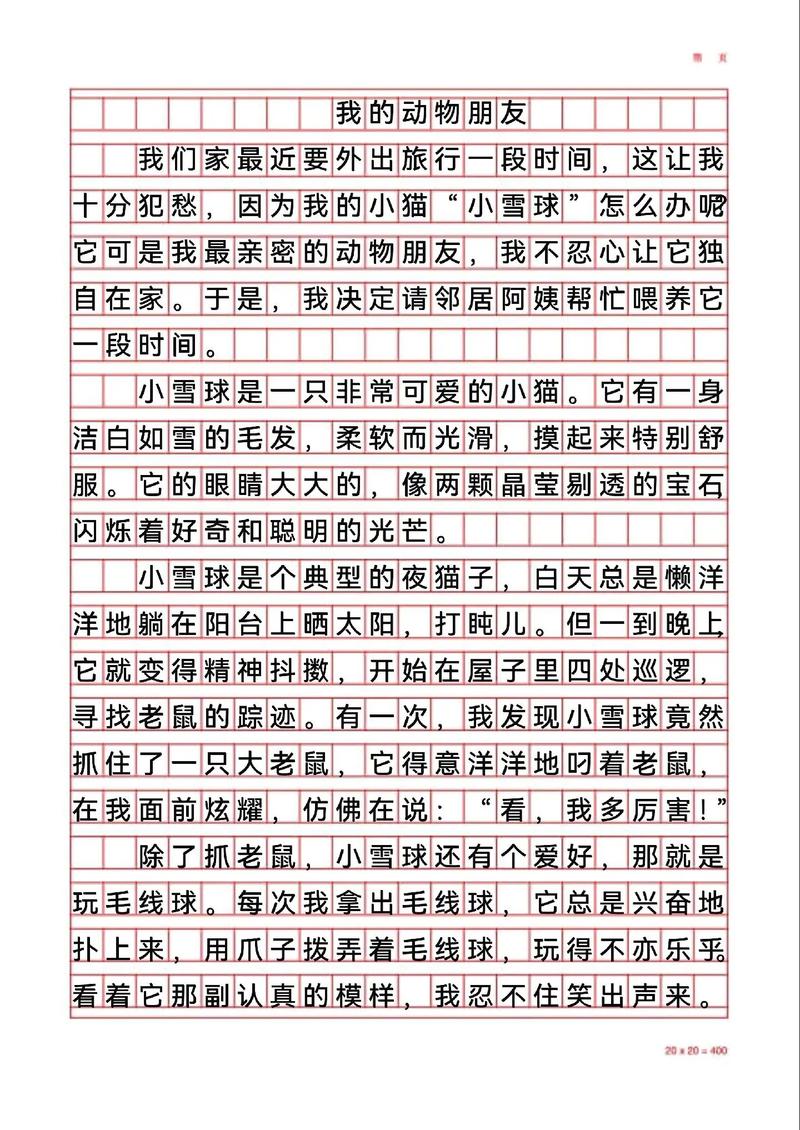 第 页
我的动物朋友
我们家最近要外出旅行一段时间，这让我
十分犯愁，因为我的小猫“小雪球”怎么办呢？
它可是我最亲密的动物朋友，我不忍心让它独
自在家。于是，我决定请邻居阿姨帮忙喂养它
一段时间。
小雪球是一只非常可爱的小猫。它有一身
洁白如雪的毛发，柔软而光滑，摸起来特别舒
服。它的眼睛大大的，像两颗晶莹剔透的宝石，
闪烁着好奇和聪明的光芒。
小雪球是个典型的夜猫子，白天总是懒洋
洋地躺在阳台上晒太阳，打盹儿。但一到晚上，
它就变得精神抖擞，开始在屋子里四处巡逻，
寻找老鼠的踪迹。有一次，我发现小雪球竟然
抓住了一只大老鼠，它得意洋洋地叼着老鼠，
在我面前炫耀，仿佛在说：“看，我多厉害！”
除了抓老鼠，小雪球还有个爱好，那就是
玩毛线球。每次我拿出毛线球，它总是兴奋地
扑上来，用爪子拨弄着毛线球，玩得不亦乐乎。
看着它那副认真的模样，我忍不住笑出声来。
20 x 20 = 400